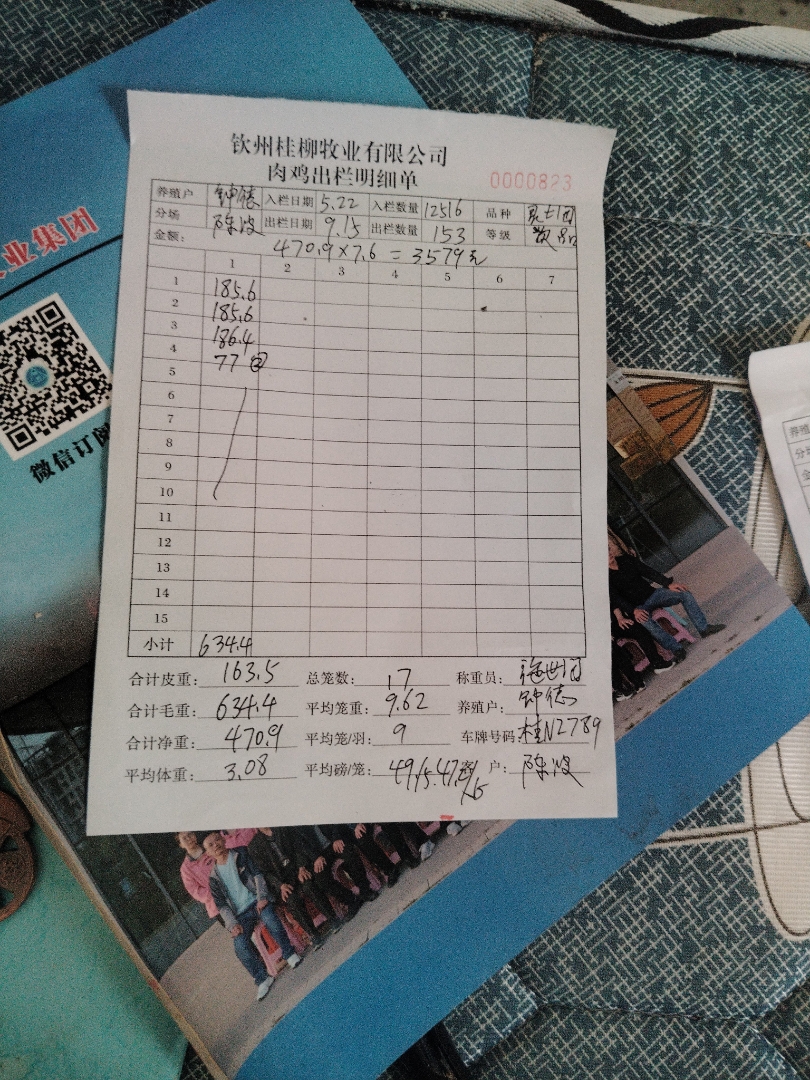 钦州桂柳牧业有限公司
肉鸡出栏明细单
0000823
养殖户 钟德 入栏日期 5.22 入栏数量 12516 品种
分场 陈波 出栏日期 9.15 出栏数量 153 等级 次品
金额： 470.9×7.6=3579元
1 2 3 4 5 6 7
1 185.6
2 185.6
3 186.4
4 77 ②
5
6
7
8
9
10
11
12
13
14
15
小计 634.4
合计皮重： 163.5 总笼数： 17 称重员：
合计毛重： 634.4 平均笼重： 9.62 养殖户： 钟德
合计净重： 470.9 平均笼/羽： 9 车牌号码： 桂N2789
平均体重： 3.08 平均磅/笼： 户： 陈波
业集团
微信订阅
养殖
分场